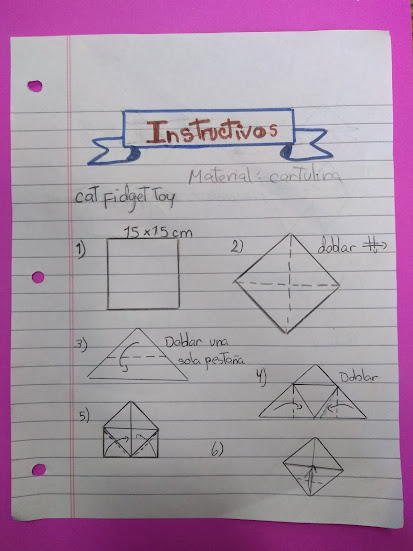 Instructivos
Material: cartulina
cat Fidget Toy
1) 15 x 15 cm
2) doblar
3) Doblar una
sola pestaña
4) Doblar
5)
6)